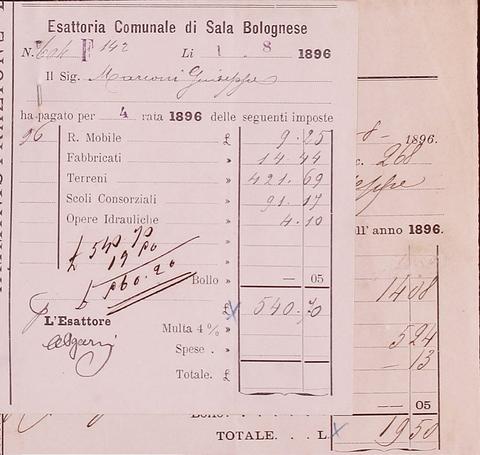 Esattoria Comunale di Sala Bolognese
N. 604 F 142 Li 1 8 1896
Il Sig. Marconi Giuseppe
ha pagato per 4 rata 1896 delle seguenti imposte
96 R. Mobile £ 9.25
Fabbricati » 14.44
Terreni » 421.69
Scoli Consorziali » 91.17
Opere Idrauliche » 4.10
£ 540 70
19 50
£ 560.20
Bollo » — 05
£ 540.70
L'Esattore
Multa 4 % »
Spese . »
Totale. £
8 1896.
268
seppe
ll' anno 1896.
14 08
5 24
— 13
— 05
TOTALE. . . L. 19 50